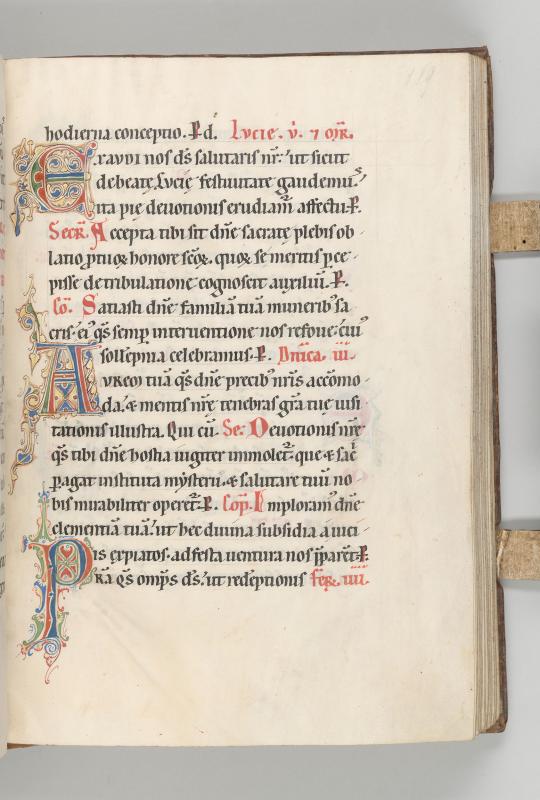 hodierna conceptio. P. d. Lucie. v. 7 oĩr.
Exaudi nos d̄s salutaris nr̄. ut sicut
de beatę Lucię festiuitate gaudemus.
ita pię deuotionis erudiam̄ affectu. P.
Secr̄. Accepta tibi sit dn̄e sacratę plebis ob
latio ꝓ tuoꝝ honore sc̄oꝝ. quoꝝ se meritis ꝑce
pisse de tribulatione cognoscit auxiliū. P.
Co. Satiasti dn̄e familiā tuā munerib; sa
cris. ei; qs̄ semꝑ interuentione nos refoue. cui;
sollempnia celebramus. P. Dn̄ica. iii.
Aurem tuā qs̄ dn̄e precib; nr̄is accōmo
da. & mentis nr̄e tenebras gr̄a tue uisi
tationis illustra. Qui cū. Se. Deuotionis nr̄e
qs̄ tibi dn̄e hostia iugiter immolet̄. que & sac̄
ꝑagat instituta mẏsterii. & salutare tuū no
bis mirabiliter operet̄. P. Cop̄. Imploram; dn̄e
clementiā tuā. ut hec diuina subsidia a uici
is expiatos. ad festa uentura nos p̄paret. P.
Pr̄a qs̄ omp̄s d̄s. ut redēptionis Fer̄. iiii.